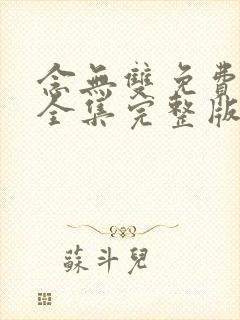 念無雙免費
全集完整版
蘇斗兒